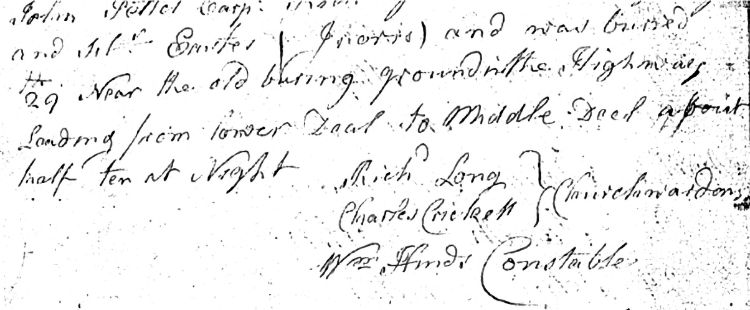 John Pettet Carp.
and Silr. Eastes (Jurors) and was buried
29th Near the old buring ground in the Highway
Leading from lower Deal to Middle Deel about
half ten at Night
Richd Long
Charles Crickett } Churchwardons
Wm. Hinds Constable